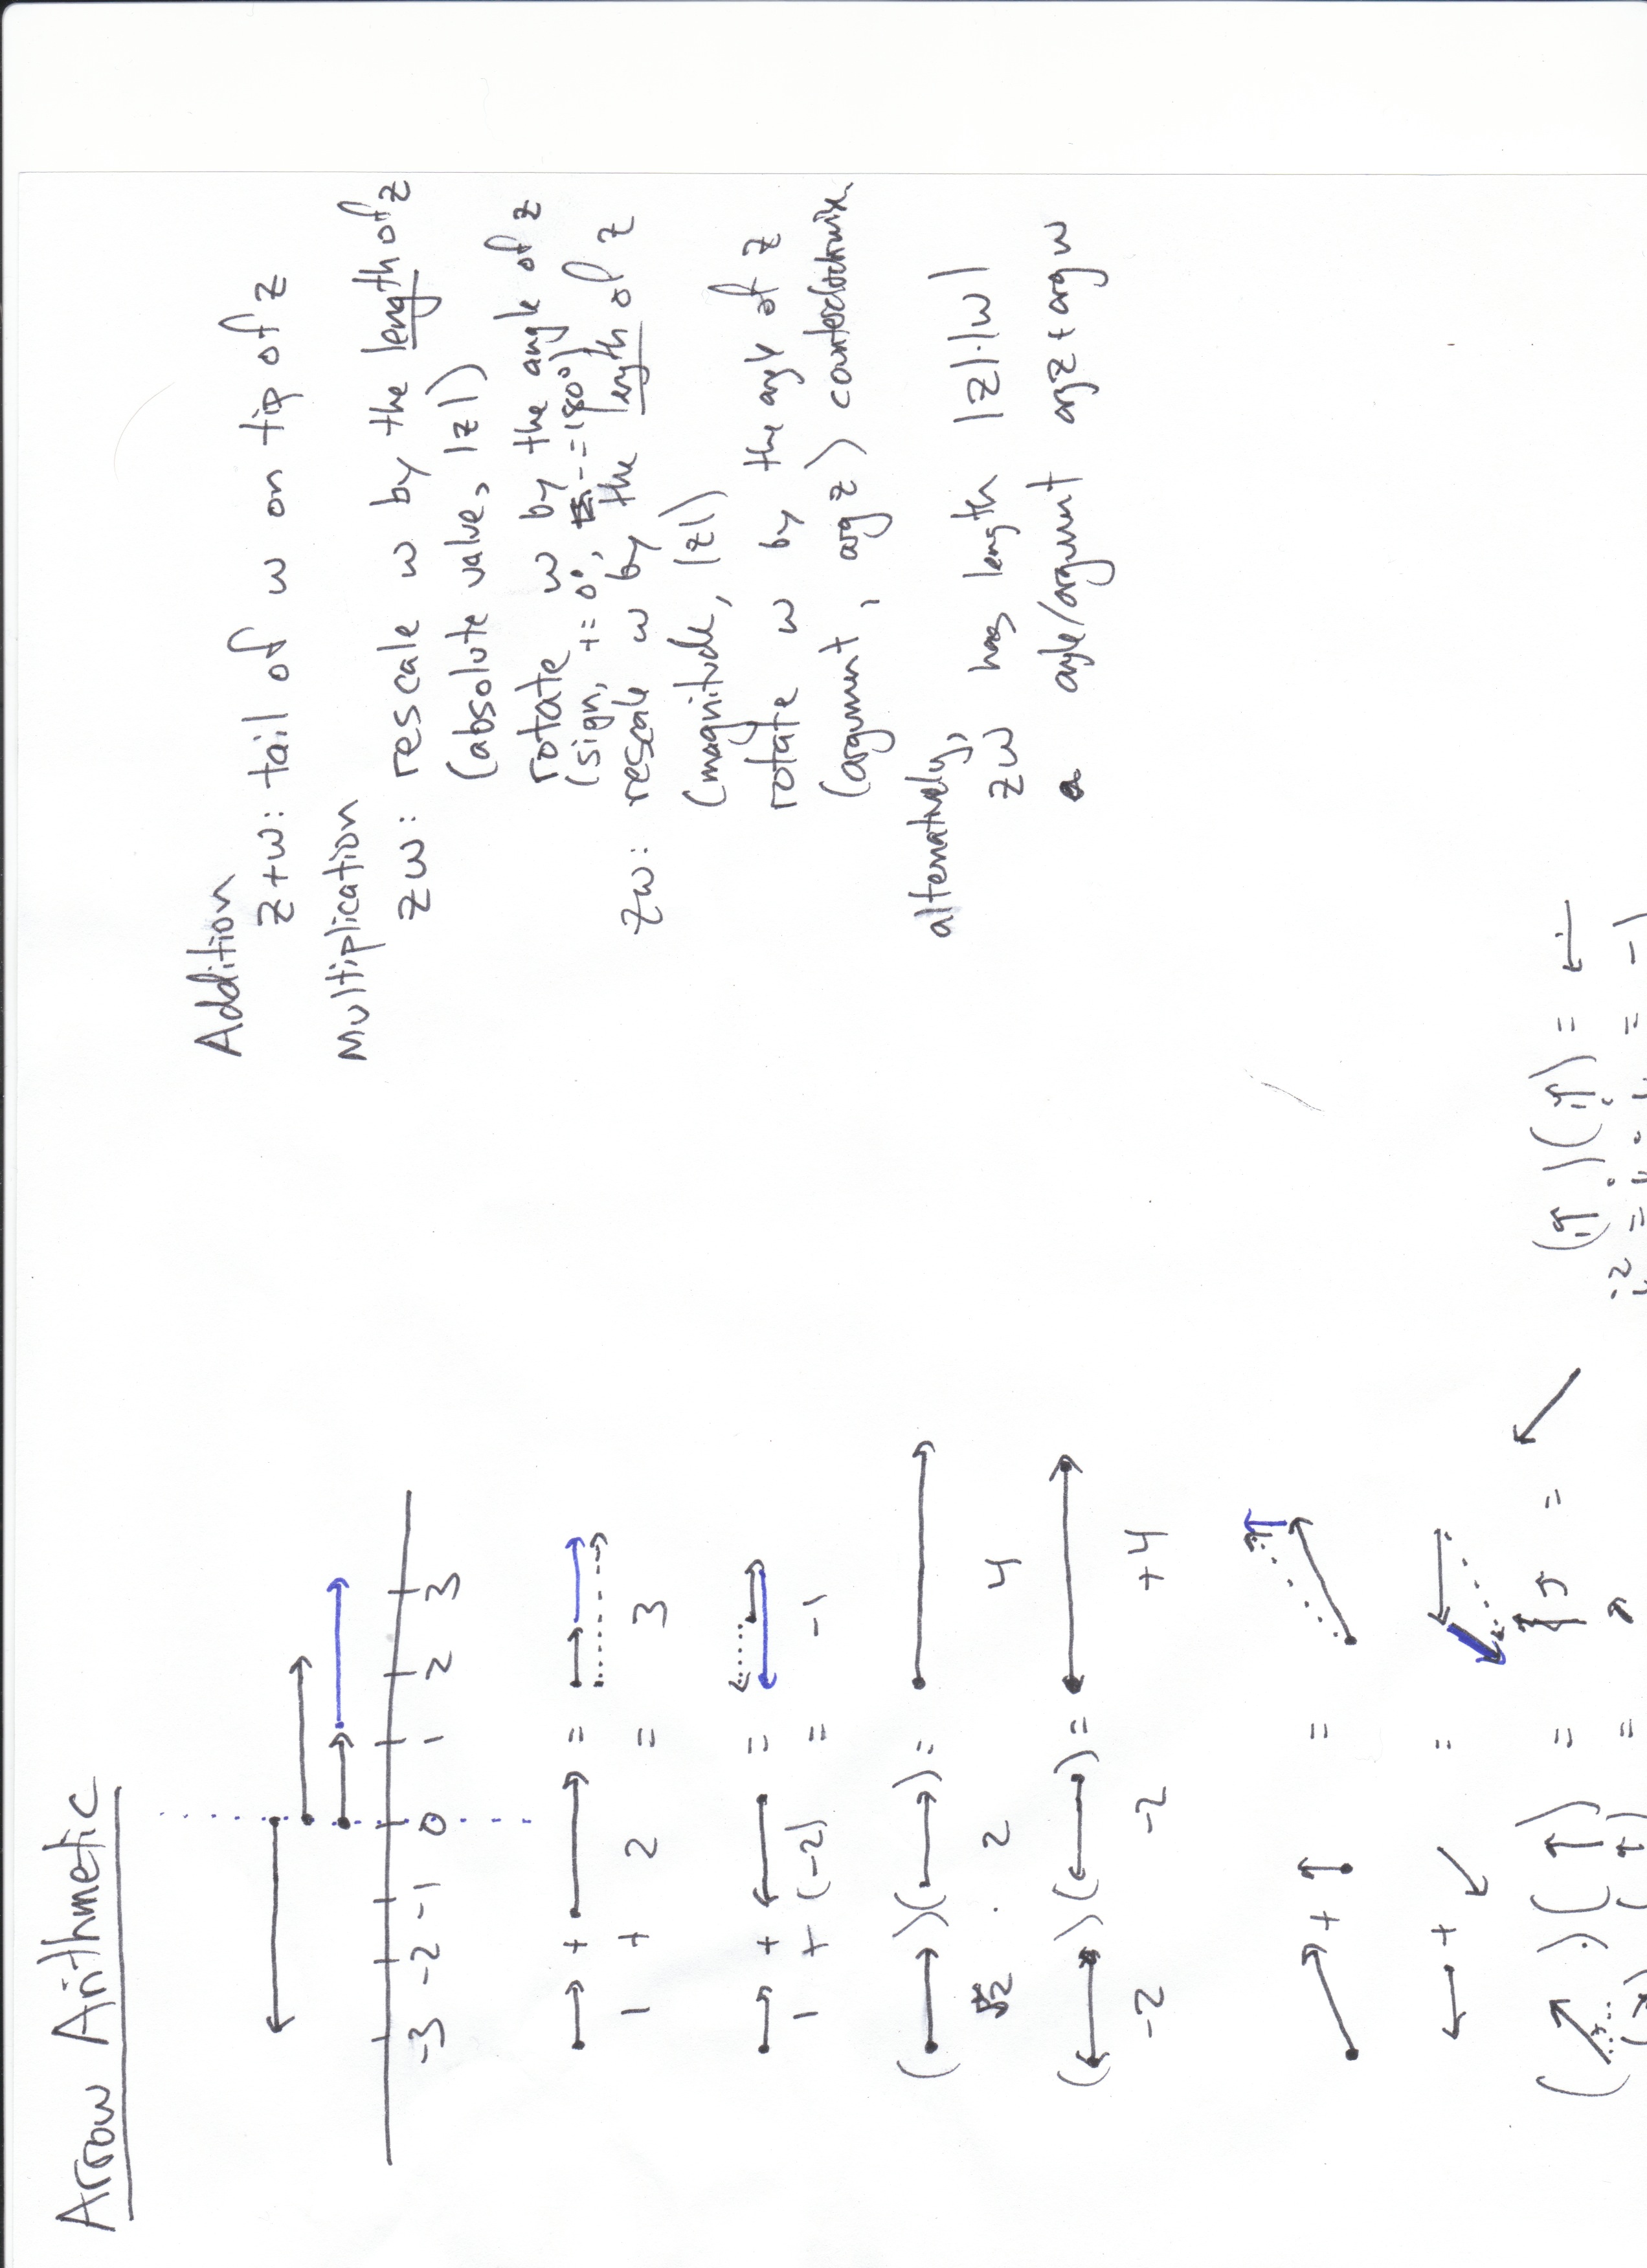 Arrow Arithmetic
-3 -2 -1 0 1 2 3
+ =
1 + 2 = 3
+ =
1 + (-2) = -1
( )( ) =
2 · 2 4
( )( ) =
-2 -2 +4
+ =
+ =
( )( ) = =
( )( ) =
Addition
z+w: tail of w on tip of z
Multiplication
zw: rescale w by the length of z
(absolute value, |z|)
rotate w by the angle of z
(sign, += 0°, -=180°)
zw: rescale w by the length of z
(magnitude, |z|)
rotate w by the angle of z
(argument, arg z) counterclockwise
alternatively,
zw has length |z|·|w|
angle/argument arg z + arg w
( )( ) =
i² = i · i = -1